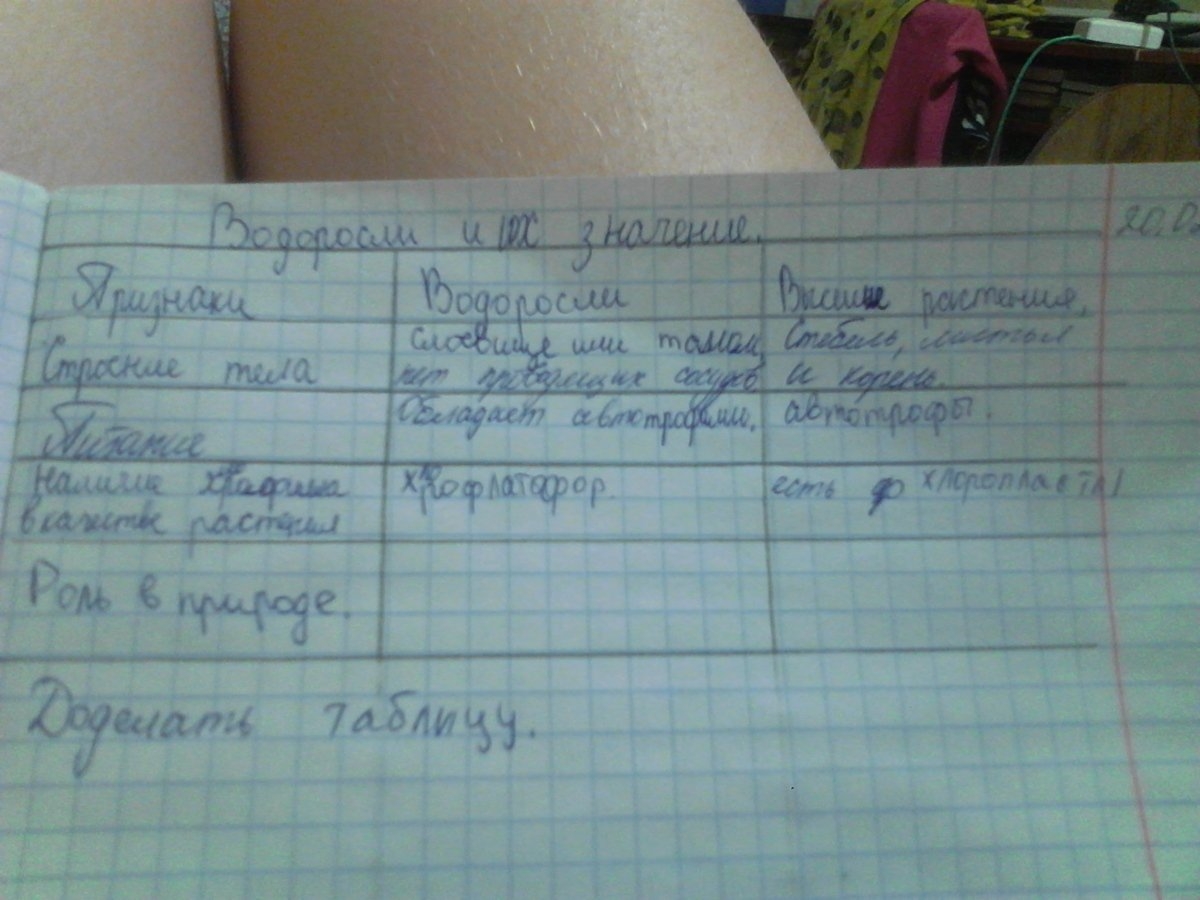 Водоросли и их значение.
20.0
Признаки
Водоросли
Высшие растения.
Строение тела
Слоевище или таллом,
нет проводящих сосудов
Стебель, листья
и корень.
Питание
Обладает автотрофами.
автотрофы.
Наличие
в качестве растения
хрофлатофор.
есть хлоропласты
Роль в природе.
Доделать таблицу.